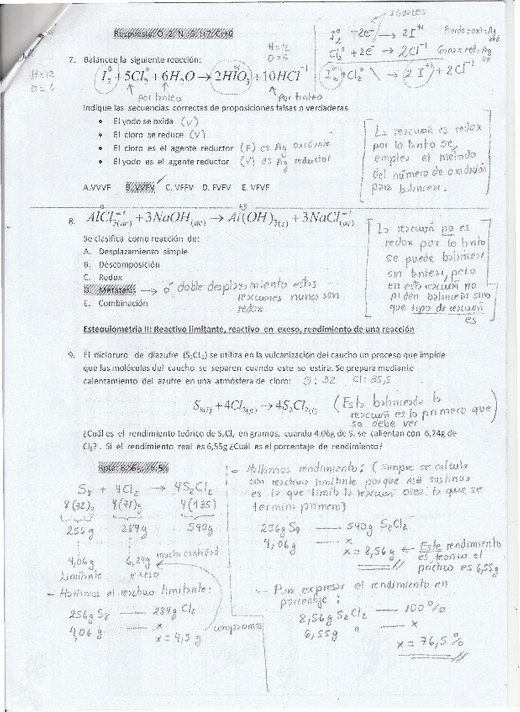 Respuesta: O -2/ N +5/ I +7/ Cr+6
IGUALES
I₂⁰ -2e⁻ → 2I⁺¹ Pierde=oxi=Ag
Cl₂⁰ +2e⁻ → 2Cl⁻¹ Gana=red=Ag ox
I₂⁰ + Cl₂⁰ → 2I⁺¹ + 2Cl⁻¹
H=12
O=6
7. Balancee la siguiente reacción:
H=12
O=6
I₂⁰ + 5Cl₂⁰ + 6H₂O → 2HIO₃ + 10HCl⁻¹
Por tanteo
Por tanteo
Indique las secuencias correctas de proposiciones falsas o verdaderas
• El yodo se oxida (V)
• El cloro se reduce (V)
• El cloro es el agente reductor (F) es Ag oxidante
• El yodo es el agente reductor (V) es Ag reductor
La reacción es redox
por lo tanto se
emplea el método
del número de oxidación
para balancear.
A.VVVF B. VVFV C. VFFV D. FVFV E. VFVF
8. AlCl₃(ac) + 3NaOH(ac) → Al(OH)₃(s) + 3NaCl(ac)
Se clasifica como reacción de:
A. Desplazamiento simple
B. Descomposición
C. Redox
D. Metátesis → ó doble desplazamiento estas
reacciones nunca son
redox
E. Combinación
La reacción no es
redox por lo tanto
se puede balancear
sin tanteo, pero
en esta reacción no
piden balancear sino
que tipo de reacción
es
Estequiometria II: Reactivo limitante, reactivo en exeso, rendimiento de una reacción
9. El dicloruro de diazufre (S₂Cl₂) se utiliza en la vulcanización del caucho un proceso que impide
que las moléculas del caucho se separen cuando este se estira. Se prepara mediante
calentamiento del azufre en una atmósfera de cloro: S:32 Cl:35,5
S₈(l) + 4Cl₂(g) → 4S₂Cl₂(l) (Esta balanceada la
reacción es lo primero que
se debe ver)
¿Cuál es el rendimiento teórico de S₂Cl₂ en gramos, cuando 4,06g de S₈ se calientan con 6,24g de
Cl₂?. Si el rendimiento real es 6,55g ¿Cuál es el porcentaje de rendimiento?
Rpta: 8,56g /76,5%
S₈ + 4Cl₂ → 4S₂Cl₂
8(32)g 4(71)g 4(135)
256g 284g 540g
4,06g 6,24g mucha cantidad
limitante exeso
- Hallamos el reactivo limitante:
256g S₈ — 284g Cl₂
4,06g — x
x = 4,5g
comprobamos
- Hallamos rendimiento: (simpre se calcula
con reactivo limitante porque ese sustancia
es la que limita la reacción osea la que se
termina primero)
256g S₈ — 540g S₂Cl₂
4,06g — x
x = 8,56g ← Este rendimiento
es teorico el
práctico es 6,55g
- Para expresar el rendimiento en
porcentaje:
8,56g S₂Cl₂ — 100%
6,55g " — x
x = 76,5%